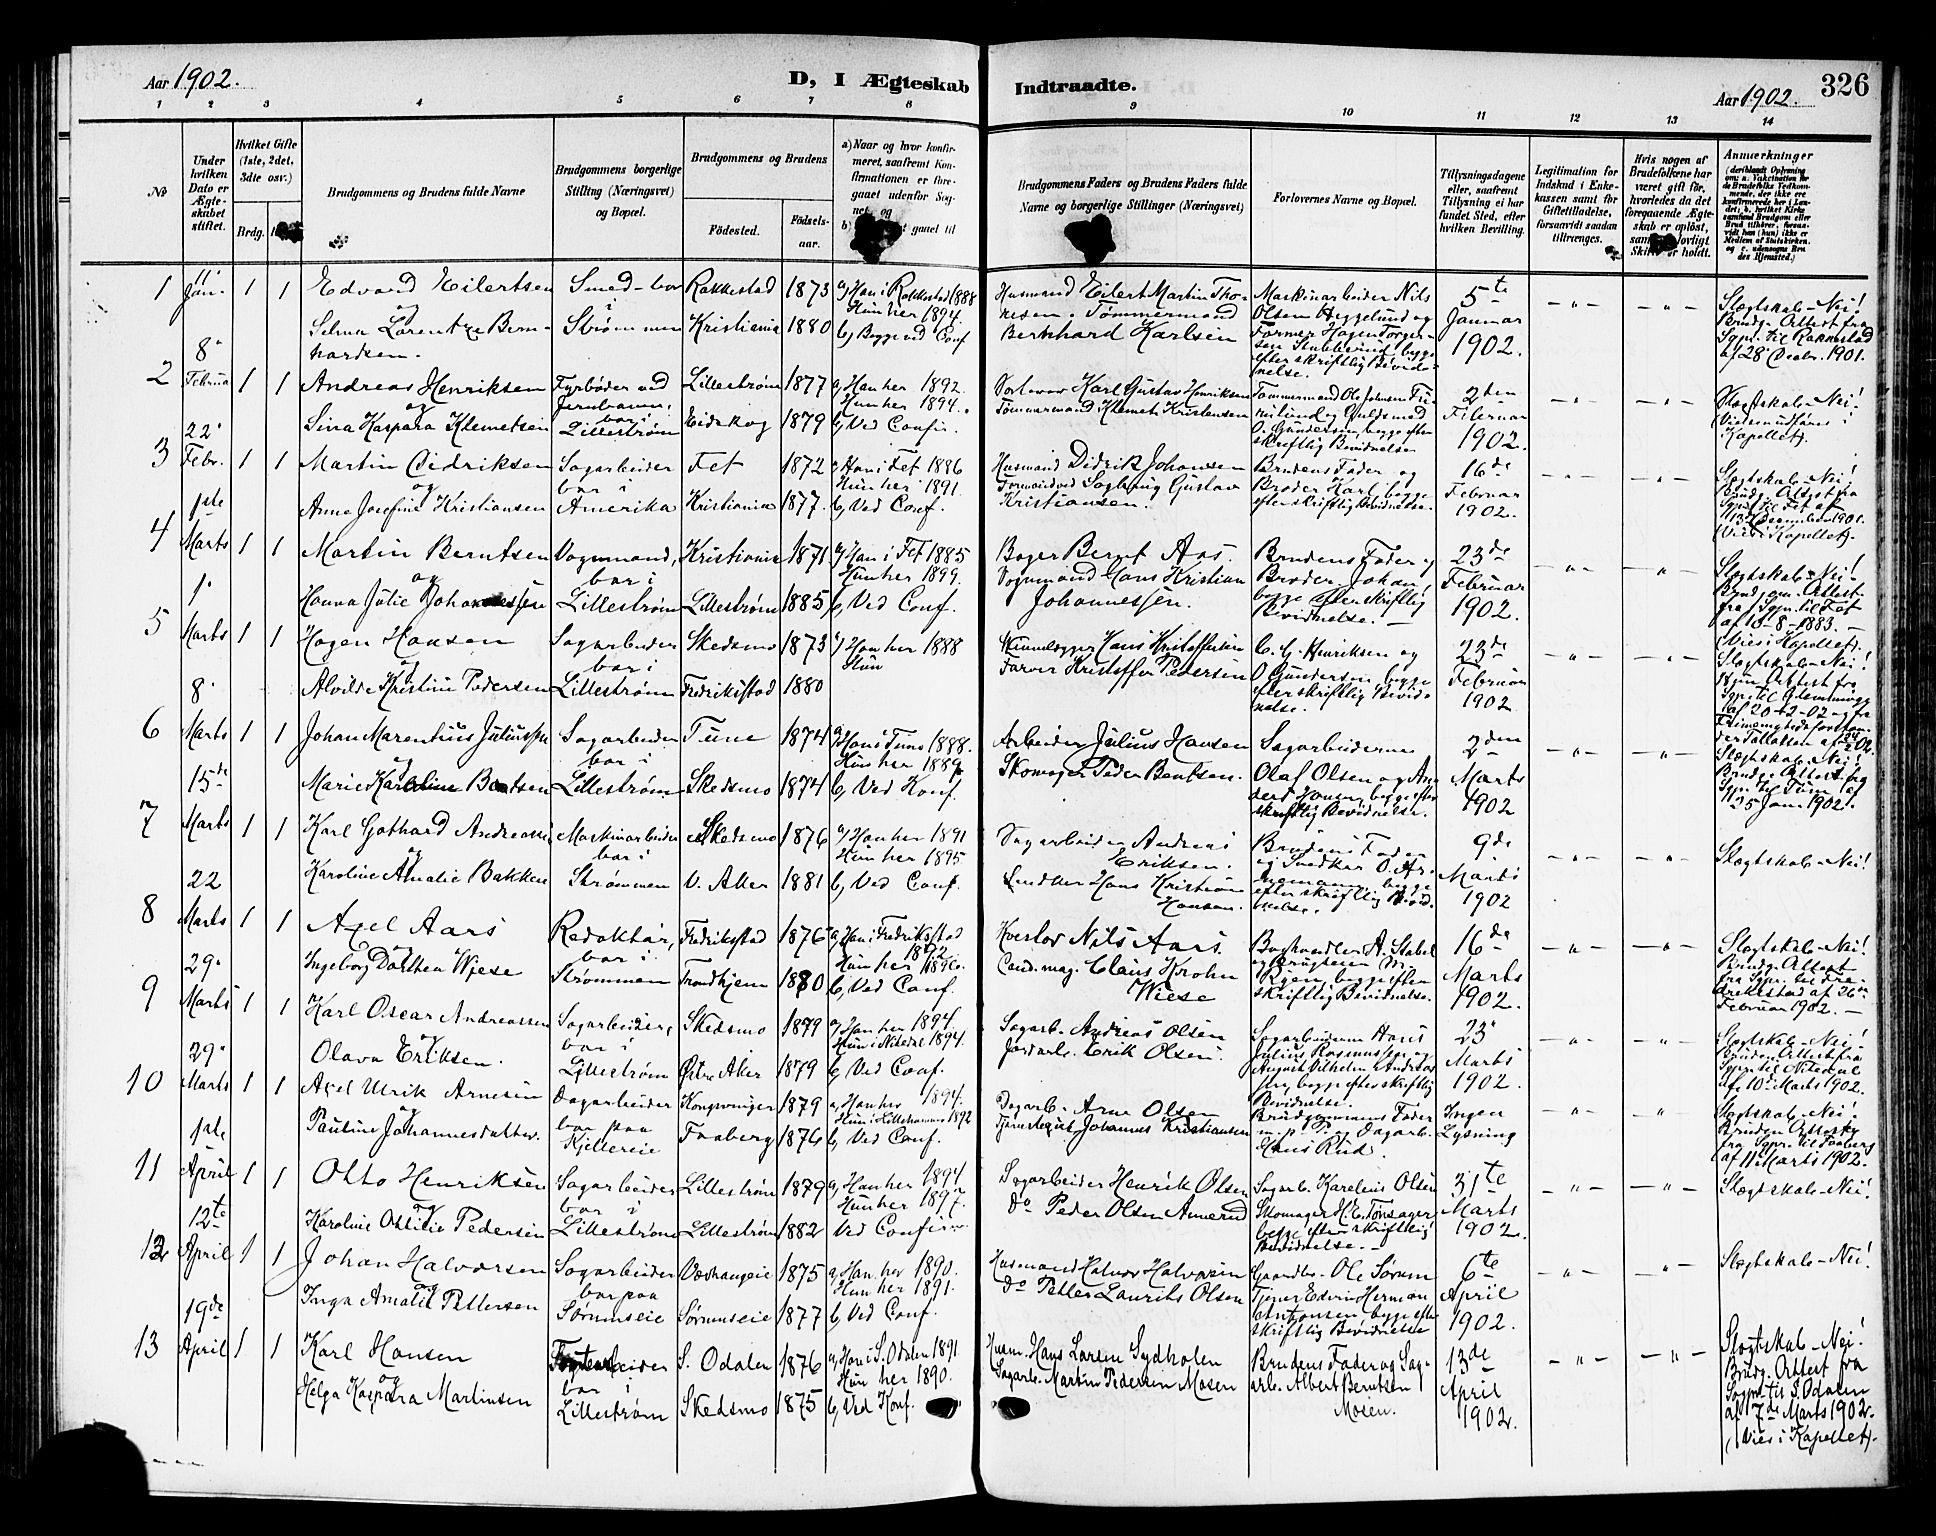 Aar 1902.
D, I Ægteskab Indtraadte.
Aar 1902. 326
1 2 3 4 5 6 7 8 9 10 11 12 13 14
No
Under hvilken Dato er Ægteskabet stiftet.
Hvilket Gifte (1ste, 2det, 3die osv.)
Brdg.
Brudgommens og Brudens fulde Navne
Brudgommens borgerlige Stilling (Næringsvei) og Bopæl.
Brudgommens og Brudens
Fødested.
Fødselsaar.
a) Naar og hvor konfirmeret, saafremt Konfirmationen er foregaaet udenfor Sognet, og
Brudgommens Faders og Brudens Faders fulde Navne og borgerlige Stillinger (Næringsvei)
Forlovernes Navne og Bopæl.
Tillysningsdagene eller, saafremt Tillysning ei har fundet Sted, efter hvilken Bevilling.
Legitimation for Indskud i Enkekassen samt for Giftetilladelse, forsaavidt saadan tiltrænges.
Hvis nogen af Brudefolkene har været gift før, hvorledes da det foregaaende Ægteskab er opløst,
Anmærkninger
1 11' Jan. 1 1 Edvard Eilertsen Smed - bor Rakkestad 1873 a) Han i Rakkestad 1888 Husmand Eilert Martin Thoresen. Maskinarbeider Nils 5te Slegtskab - Nei!
og i Hun her 1894. Tømmermand Olsen Heggelund og Januar Brudg. Attest fra
Selma Lorentze Bernhardsen. Strømmen Kristiania 1880 b) Begge ved Conf Bernhard Karlsen 1902. Sgpr. til Rakkestad
af 28 Decbr. 1901.
2 8' Februa 1 1 Andreas Henriksen Fyrbøder ved Lillestrøm 1877 a) Han her 1892. Karl Gustav Henriksen Tømmermand Ole Johnsen 2den Slegtskab - Nei!
og Jernbanen, Hun her 1894. Tømmermand Klemet Kristensen og Guldsmed Februar
Sina Kaspara Klemetsen bor i Lillestrøm Eidskog 1879 b) Ved Confir. O. Gundersen, begge efter skriftlig Bevidnelse 1902. Kapellet).
3 22' Febr. 1 1 Martin Didriksen Sagarbeider Fet 1872 a) Han i Fet 1886 Husmand Didrik Johansen Brudens Fader og 16de Slegtskab - Nei!
og bor i Hun her 1891. Formand ved Sagbrug Gustav Broder Karl, begge Februar Brudg. Attest fra
Anne Josefine Kristiansen Amerika Kristiania 1877. b) Ved Conf. Kristiansen. efter skriftlig Bevidnelse. 1902. Sgpr. til Fet af
13 December 1901.
(Vies i Kapellet).
4 1ste Marts 1 1 Martin Berntsen Vognmand, Kristiania 1871 a) Han i Fet 1885 Bager Bernt Aas. Brudens Fader og 23de Slegtskab - Nei!
og bor i Hun her 1899. Vognmand Hans Kristian Broder Johan, Februar Brudgom. Attest
Hanna Julie Johannessen Lillestrøm Lillestrøm 1885 b) Ved Conf. Johannessen. begge efter skriftlig Bevidnelse. 1902. fra Sgpr. til Fet
af 15-8-1883.
(Vies i Kapellet).
5 1' Marts 1 1 Hagen Hansen Sagarbeider Skedsmo 1873 a) Han her 1888 Hans Kristoffersen C. G. Henriksen og 23de Slegtskab - Nei!
og bor i Hun Farver Kristoffer Pedersen O. Gundersen, begge Februar
Alvilde Kristine Pedersen Lillestrøm Fredrikstad 1880 efter skriftlig Bevidnelse. 1902 Sgpr. til Glemminge
af 20-2-02 og fra
6 8' Marts 1 1 Johan Marentius Juliussen Sagarbeider Tune 1874 a) Han i Tune 1888. Arbeider Julius Hansen Sagarbeiderne 2den Slegtskab - Nei!
og bor i Hun her 1889 Skomager Peder Bentsen. Olaf Olsen og Anders Hansen, begge efter Marts Brudg. Attest fra
Marie Karoline Bentsen Lillestrøm Skedsmo 1874 b) Ved Konf. skriftlig Bevidnelse. 1902 Sgpr. til Tune af
25 Jan. 1902.
7 15de Marts 1 1 Karl Gothard Andreassen Maskinarbeider Skedsmo 1876 a) Han her 1891 Sagarbeider Andreas Brudens Fader 9de Slegtskab - Nei!
og bor i Hun her 1895 Eriksen. og Snedker O. Marts
Karoline Amalie Bakken Strømmen V. Aker 1881 b) Ved Conf. Snedker Hans Kristian Hansen. begge efter skriftlig Bevidnelse. 1902
8 22 Marts 1 1 Axel Aars Redaktør, Fredrikstad 1876 a) Han i Fredrikstad 1892 Kvestor Nils Aars. Boghandler A. Stabel 16de Slegtskab - Nei!
og bor i Hun her 1896. Cand. mag. Claus Krohn og Marts Brudg. Attest
Ingeborg Dorthea Wiese Strømmen Trondhjem 1880 b) Ved Conf. Wiese begge efter skriftlig Bevidnelse. 1902. fra Sgpr. til Fredrikstad af 26de
Februar 1902. -
9 29' Marts 1 1 Karl Oscar Andreassen Sagarbeider, Skedsmo 1879 a) Han her 1894. Sagarb. Andreas Olsen Sagarbeiderne Hans 23' Slegtskab - Nei!
og bor i Hun i Nitedal 1894. Jordarb. Erik Olsen. Julius Rasmussen og Marts Bruden Attest fra
Olava Eriksen. Lillestrøm Østre Aker 1879 b) Ved Conf. August Vilhelm Andreassen, begge efter skriftlig Bevidnelse. 1902. Sgpr. til Nitedal
af 10de Marts 1902.
10 29' Marts 1 1 Axel Ulrik Arnesen Dagarbeider Kongsvinger 1879 a) Han her 1894. Dagarb. Arne Olsen Brudgommens Fader Ingen Slegtskab - Nei!
og bor paa Hun i Lillehammer 1892 Johannes Kristiansen og Dagarb. Lysning Bruden Attest
Pauline Johannesdatter. Kjellereie Faaberg 1876 b) Ved Conf. Hans Rud. fra Sgpr. til Faaberg
af 11 Marts 1902.
11 1ste April 1 1 Otto Henriksen Sagarbeider Lillestrøm 1879 a) Han her 1894 Sagarbeider Henrik Olsen Sagarb. Karelius Olsen 31te Slegtskab - Nei!
og bor i Hun her 1897. Do Peder Olsen Amerud Skomager H. E. Tønsager Marts
Karoline Ottilie Pedersen Lillestrøm Lillestrøm 1882 Ved Confir. begge efter skriftlig Bevidnelse. - 1902.
12 12te April 1 1 Johan Halvorsen Sagarbeider 1875 a) Han her 1890. Husmand Halvor Halvorsen Gaardbr. Ole Sørum 6te Slegtskab - Nei!
og bor paa Hun her 1891. Do Petter Laurits Olsen Tjener Edvin Herman April
Inga Amalie Pettersen Sørumseie Sørumseie 1877 b) Ved Conf. Antonsen, begge efter skriftlig Bevidnelse 1902.
13 19de April 1 1 Karl Hansen S. Odalen 1876 a) Han i S. Odalen 1891 Husm. Hans Larsen Sydholen Brudens Fader og Sagarb. 13de Slegtskab - Nei!
og bor i Hun her 1890. Sagarb. Martin Pedersen Mosen Albert Berntsen April Brudg. Attest fra
Helga Kaspara Martinsen Lillestrøm Skedsmo 1875 b) Ved Konf. Mosen. 1902. Sogpr. til S. Odalen
af 7de Marts 1902.
(Vies i Kapellet).